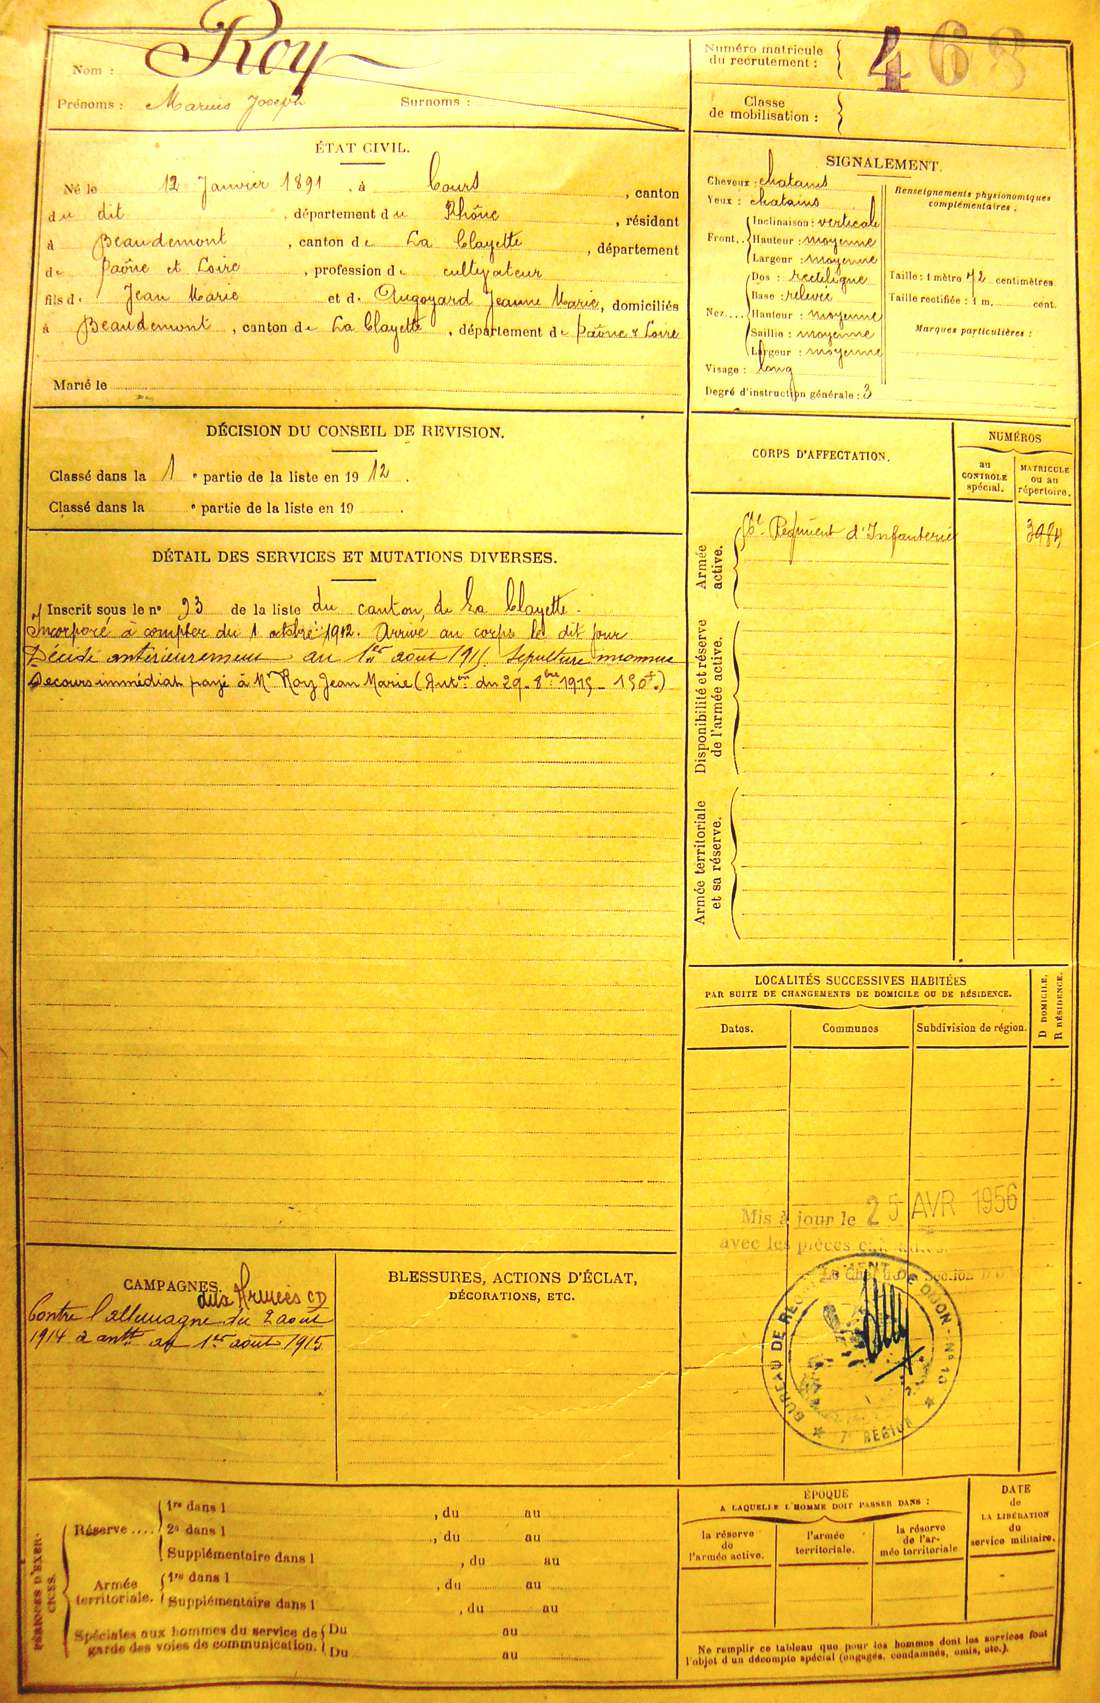 Nom : Roy
Prénoms : Marius Joseph Surnoms :
Numéro matricule
du recrutement : 468
Classe
de mobilisation :
ÉTAT CIVIL.
Né le 12 Janvier 1891 , à Cours , canton
du dit , département du Rhône , résidant
à Beaudemont , canton de La Clayette , département
de Saône et Loire , profession de cultivateur
fils de Jean Marie et de Augoyard Jeanne Marie, domiciliés
à Beaudemont , canton de La Clayette , département de Saône & Loire
Marié le
SIGNALEMENT.
Cheveux : chatains
Yeux : chatains
Front. Inclinaison : verticale
Hauteur : moyenne
Largeur : moyenne
Nez Dos : rectiligne
Base : relevée
Hauteur : moyenne
Saillie : moyenne
Largeur : moyenne
Visage : long
Degré d'instruction générale : 3
Renseignements physionomiques
complémentaires.
Taille : 1 mètre 72 centimètres
Taille rectifiée : 1 m. cent.
Marques particulières :
DÉCISION DU CONSEIL DE REVISION.
Classé dans la 1 e partie de la liste en 19 12 .
Classé dans la e partie de la liste en 19 .
DÉTAIL DES SERVICES ET MUTATIONS DIVERSES.
Inscrit sous le no 93 de la liste du canton de La Clayette.
Incorporé à compter du 1 octobre 1912. Arrivé au corps le dit jour
Décédé antérieurement au 1er aout 1915. Sepulture inconnue
Secours immédiat payé à Mr Roy Jean Marie (Auton du 29 8bre 1915 150f.)
CORPS D'AFFECTATION.
NUMÉROS
au
CONTROLE
spécial.
MATRICULE
ou au
répertoire.
Armée
active.
Régiment d'Infanterie
Disponibilité et réserve
de l'armée active.
Armée territoriale
et sa réserve.
LOCALITÉS SUCCESSIVES HABITÉES
PAR SUITE DE CHANGEMENTS DE DOMICILE OU DE RÉSIDENCE.
Dates.
Communes
Subdivision de région.
D DOMICILE.
R RÉSIDENCE.
Mis à jour le 25 AVR 1956
avec les pièces
BUREAU DE RECRUTEMENT DE DIJON - No 10
7e RÉGION
CAMPAGNES.
aux Armées CD
Contre l'allemagne du 2 aout
1914 à antt au 1er aout 1915
BLESSURES, ACTIONS D'ÉCLAT,
DÉCORATIONS, ETC.
PÉRIODES D'EXERCICES.
Réserve .... 1re dans l , du au
2e dans l , du au
Supplémentaire dans l , du au
Armée
territoriale. 1re dans l , du au
Supplémentaire dans l , du au
Spéciales aux hommes du service de
garde des voies de communication. Du au
Du au
ÉPOQUE
A LAQUELLE L'HOMME DOIT PASSER DANS :
la réserve
de
l'armée active.
l'armée
territoriale.
la réserve
de l'armée territoriale
DATE
de
LA LIBÉRATION
du
service militaire.
Ne remplir ce tableau que pour les hommes dont les services font
l'objet d'un décompte spécial (engagés, condamnés, omis, etc.).